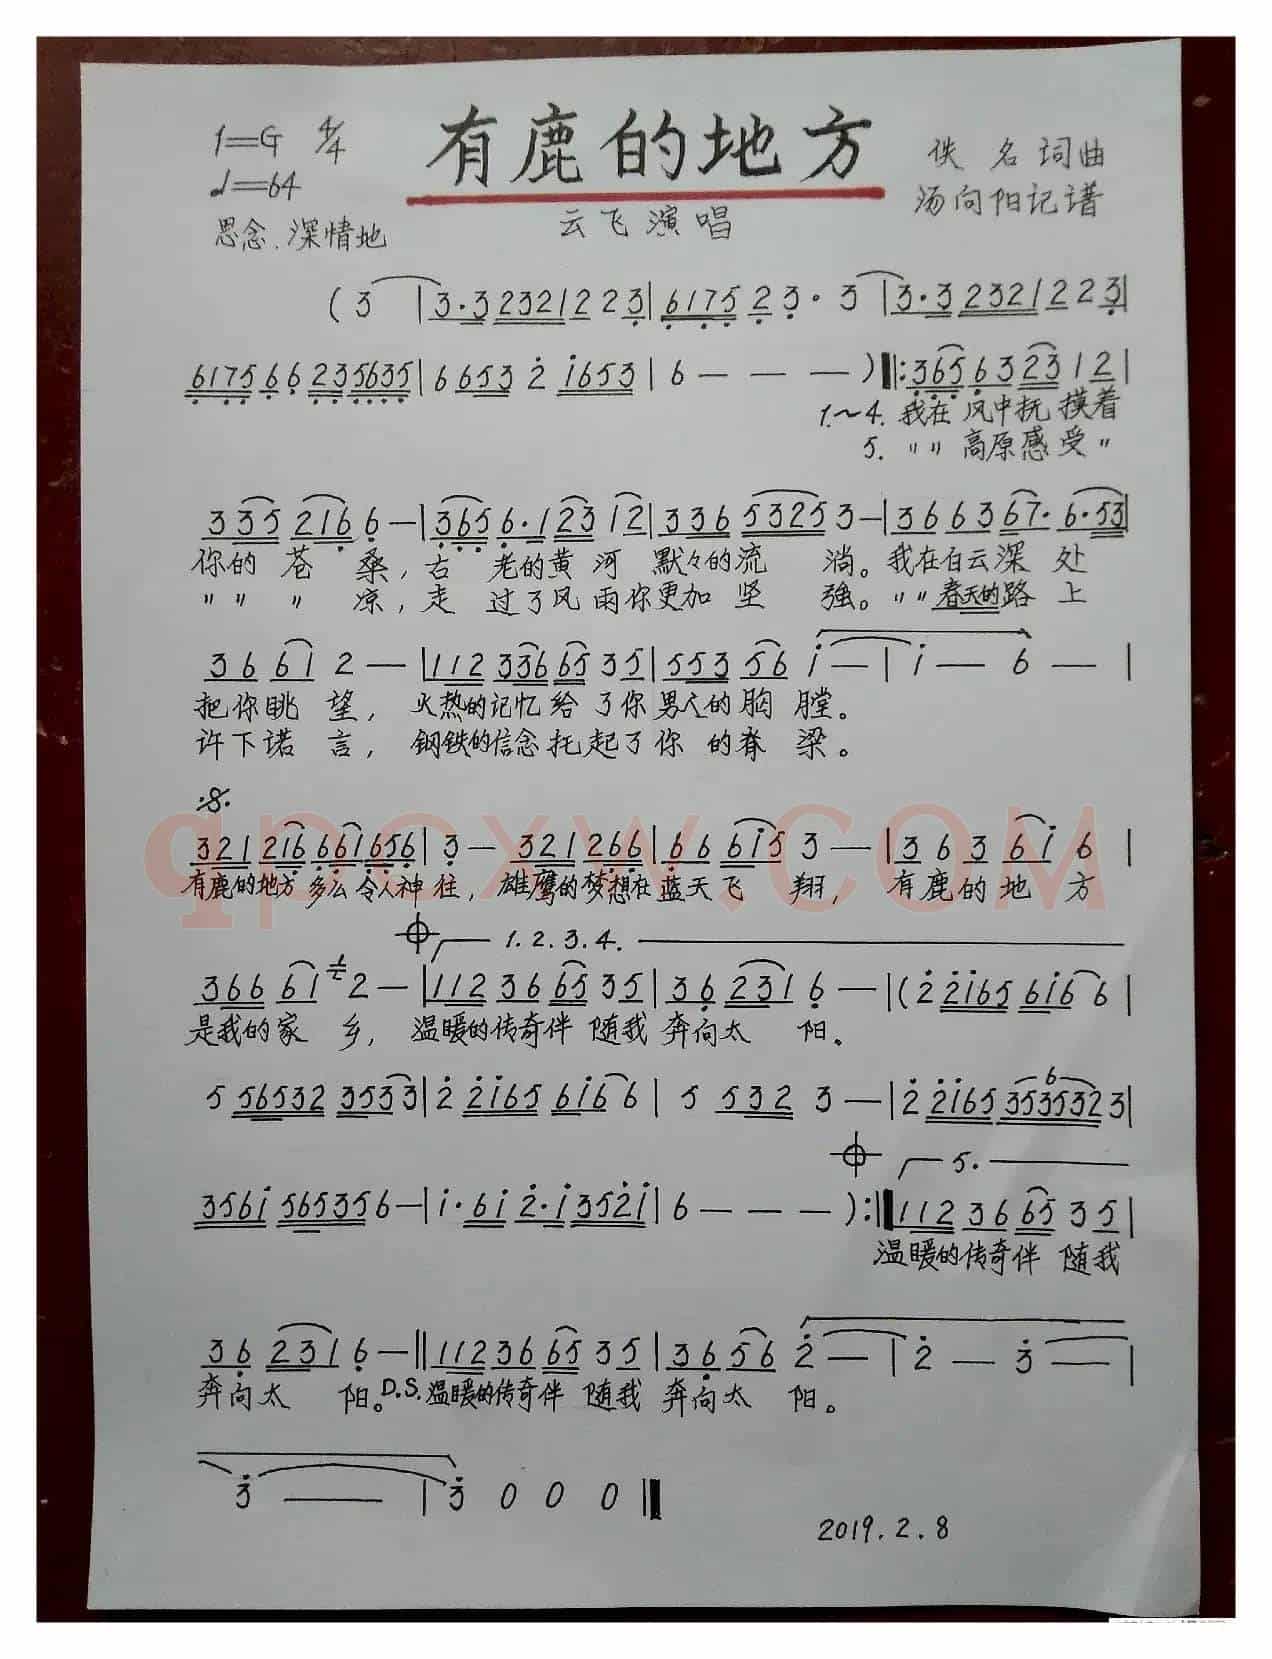 1=G 4/4
有鹿的地方
佚名词曲
♩=64
汤向阳记谱
思念、深情地
云飞演唱
(3 | 3·3 2321 2 2 3 | 6175 2 3· 3 | 3·3 2321 2 2 3 |
6175 6 6 235635 | 6 653 2 1653 | 6 — — — ) ‖: 365 63 23 12 |
1.~4. 我在 风中抚 摸着
5. 〃〃 高原感受〃
335 216 6 — | 365 6·1 23 12 | 336 5325 3 — | 366 367· 6·53 |
你的 苍 桑, 古 老的黄 河 默々的流 淌。我在白云深 处
〃〃 〃 凉, 走 过了风雨你更加 坚 强。〃〃春天的路 上
36 61 2 — | 112 336 65 35 | 553 56 1 — | 1 — 6 — |
把你眺 望, 火热的记忆给了你男人的胸 膛。
许下诺 言, 钢铁的信念托起了你 的脊 梁。
321 216 661656 | 3 — 321 266 | 66 615 3 — | 36 3 61 6 |
有鹿的地方 多么令人神 往, 雄鹰的梦想在蓝天飞 翔, 有鹿的地 方
qpcxw.COM
1.2.3.4.
366 61 2 — | 112 36 65 35 | 36 231 6 — | (2 2165 616 6 |
是我的家 乡, 温暖的传奇伴 随我 奔向太 阳。
5 56532 3533 | 2 2165 616 6 | 5 532 3 — | 2 2165 353532 3 |
6
5.
3561 565356 — | 1·61 2·1 3521 | 6 — — — ) :‖ 112 36 65 35 |
温暖的传奇伴 随我
36 231 6 — ‖ 112 36 65 35 | 36 56 2 — | 2 — 3 — |
奔向太 阳。D.S. 温暖的传奇伴 随我 奔向太 阳。
3 — | 3 0 0 0 ‖
2019.2.8